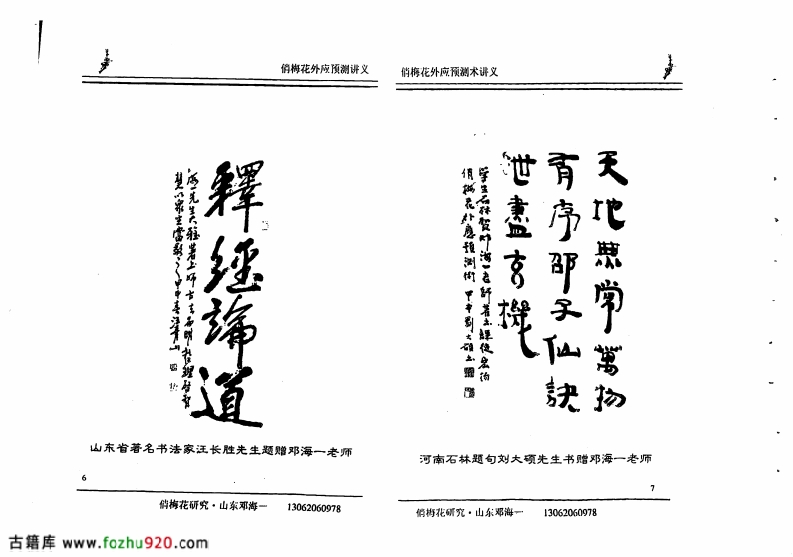 俏梅花外应预测讲义
釋經論道
山东省著名书法家汪长胜先生题赠邓海一老师
6
俏梅花研究·山东邓海一 13062060978
俏梅花外应预测术讲义
天地無常萬物
有序邵子仙訣
世盡玄機
俏梅花外應預測術
河南石林题句刘大硕先生书赠邓海一老师
7
俏梅花研究·山东邓海一 13062060978
古籍库 www.fozhu920.com